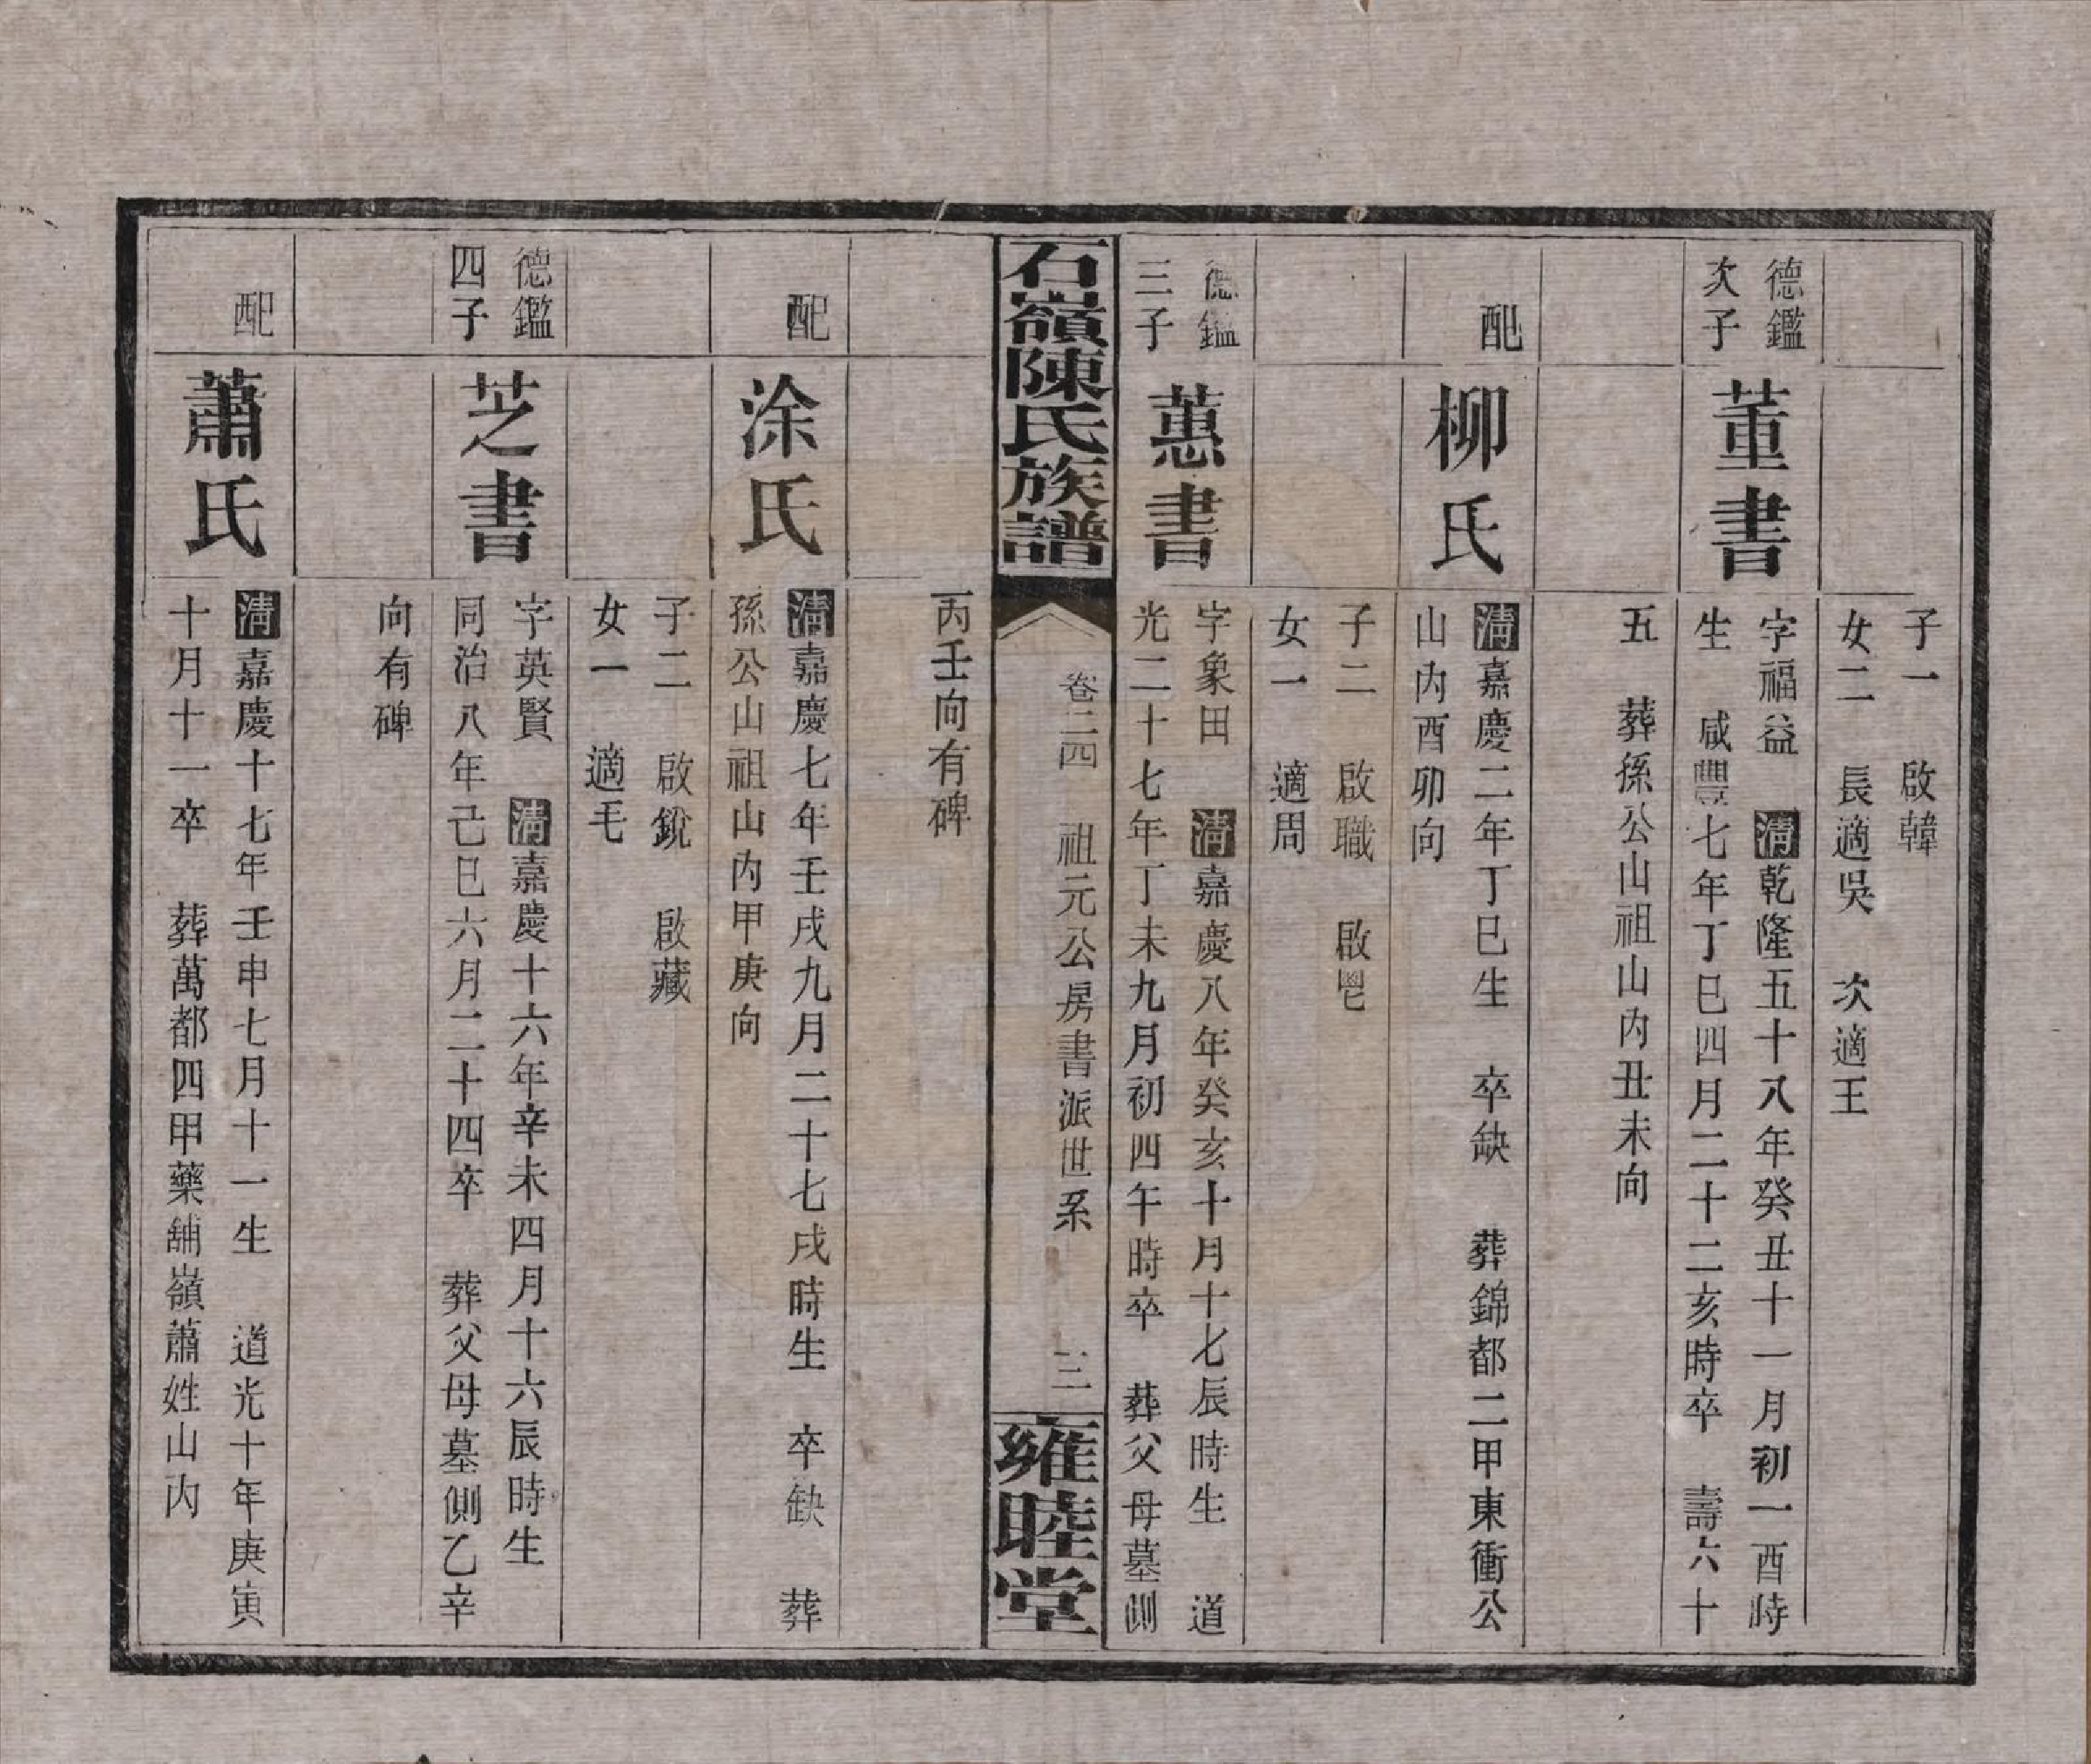 子一　啟韓
女二　長適吳　次適王
德鑑
次子
董書
字福益　清乾隆五十八年癸丑十一月初一酉時
生　咸豐七年丁巳四月二十二亥時卒　壽六十
五　葬孫公山祖山內丑未向
配
柳氏
清嘉慶二年丁巳生　卒缺　葬錦都二甲東衝公
山內酉卯向
子二　啟職　啟鬯
女一　適周
德鑑
三子
蕙書
字象田　清嘉慶八年癸亥十月十七辰時生　道
光二十七年丁未九月初四午時卒　葬父母墓側
石嶺陳氏族譜
卷二四　祖元公房書派世系
三
雍睦堂
丙壬向有碑
配
涂氏
清嘉慶七年壬戌九月二十七戌時生　卒缺　葬
孫公山祖山內甲庚向
子二　啟銳　啟藏
女一　適毛
德鑑
四子
芝書
字英賢　清嘉慶十六年辛未四月十六辰時生
同治八年己巳六月二十四卒　葬父母墓側乙辛
向有碑
配
蕭氏
清嘉慶十七年壬申七月十一生　道光十年庚寅
十月十一卒　葬萬都四甲藥舖嶺蕭姓山內